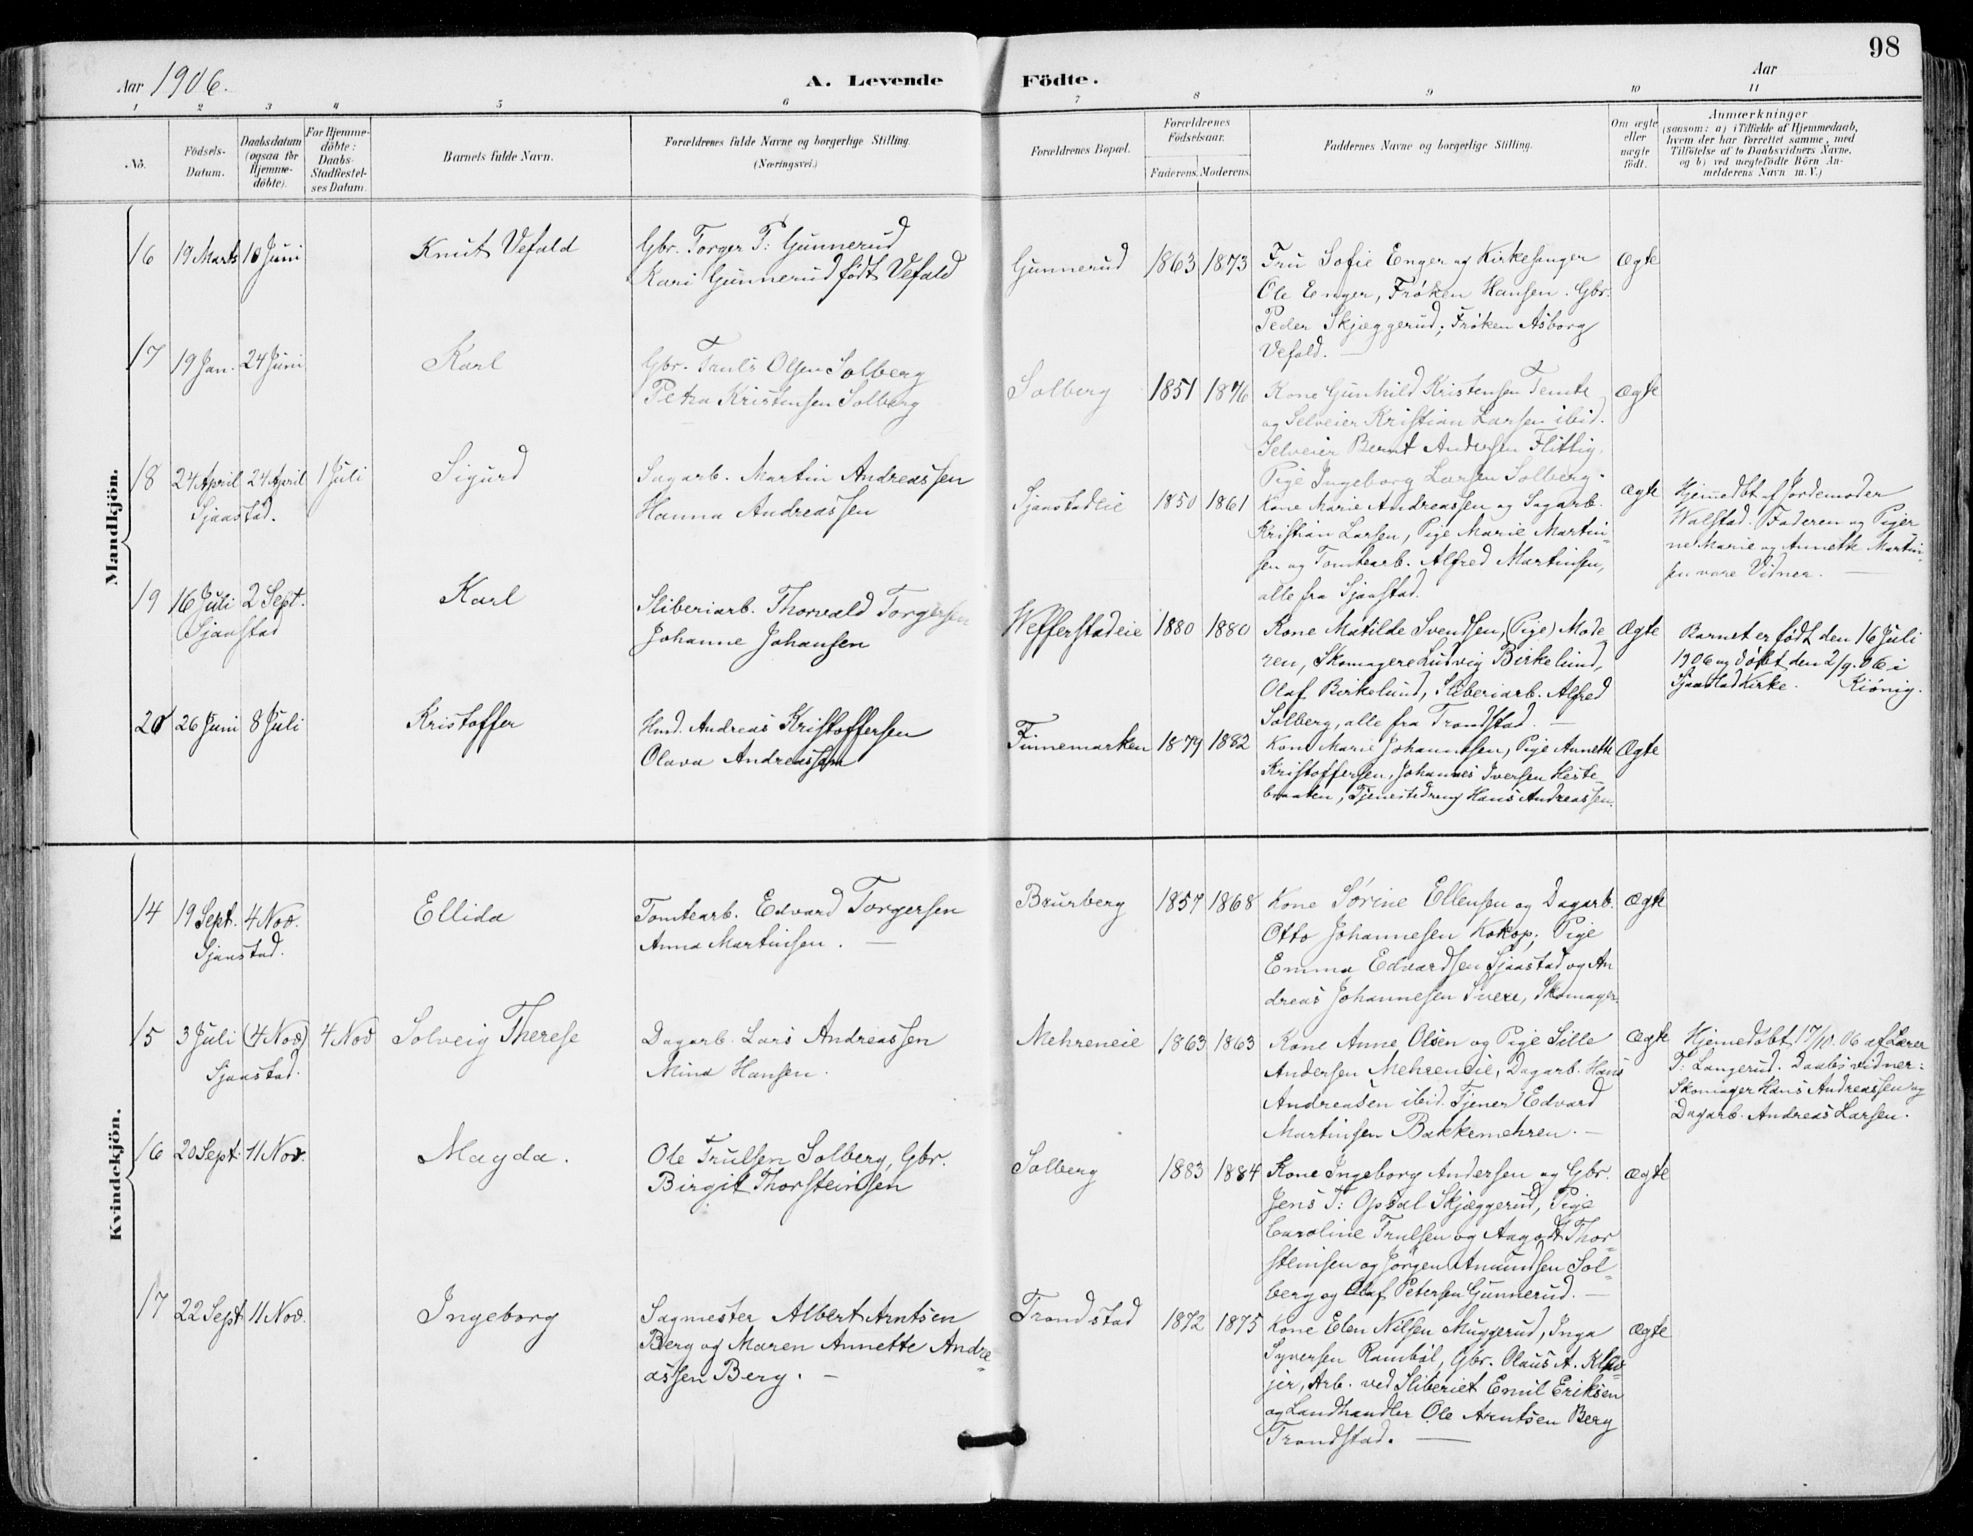 98
Aar 1906.
A. Levende Födte.
Aar
1 2 3 4 5 6 7 8 9 10 11
Nö.
Födsels-
Datum.
Daabsdatum
(ogsaa for
Hjemme-
döbte).
For Hjemme-
döbte:
Daabs-
Stadfæstel-
ses Datum.
Barnets fulde Navn.
Forældrenes fulde Navne og borgerlige Stilling.
(Næringsvei.)
Forældrenes Bopæl.
Forældrenes
Födselsaar.
Faderens. Moderens.
Faddernes Navne og borgerlige Stilling.
Om ægte
eller
uægte
födt.
Anmærkninger
(saasom: a) i Tilfælde af Hjemmedaab,
hvem der har forrettet samme, med
Tilföielse af to Daabsvidners Navne,
og b) ved uægtefödte Börn An-
melderens Navn m. V.)
Mandkjön.
16 19 Marts 10 Juni
Knut Vefald
Gbr. Torger P: Gunnerud
Kari Gunnerud født Vefald
Gunnerud 1863 1873
Fru Sofie Enger og Kirkesanger
Ole Enger, Frøken Hansen. Gbr.
Peder Skjæggerud, Frøken Asborg
Vefald.
Ægte
17 19 Jan. 24 Juni
Karl
Gbr. Truls Olsen Solberg
Petra Kristensen Solberg
Solberg 1851 1876
Kone Gunhild Kristensen Temte
og Selveier Kristian Larsen ibid.
Selveier Bernt Andersen Flittig,
Pige Ingeborg Larsen Solberg.
Ægte
18 24 April 24 April 1 Juli
Sjaastad.
Sigurd
Sagarb. Martin Andreassen
Hanna Andreassen
Sjaastadeie 1850 1861
Kone Marie Andreassen og Sagarb.
Kristian Larsen, Pige Marie Martin-
sen og Tomtearb. Alfred Martinsen,
alle fra Sjaastad.
Ægte
Hjemmedbt af Jordemoder
Walstad. Faderen og Piger
ne Marie og Annette Martin-
sen vare Vidner.
19 16 Juli 2 Sept.
Sjaastad
Karl
Sliberiarb. Thorvald Torgersen
Johanne Johansen
Wefferstadeie 1880 1880
Kone Matilde Svendsen, (Pige) Mode
ren, Skomagere Ludvig Birkelund,
Olaf Birkelund, Sliberiarb. Alfred
Solberg, alle fra Trondstad.
Ægte
Barnet er født den 16 Juli
1906 og døbt den 2/9. 06 i
Sjaastad Kirke. Kiönig.
20 26 Juni 8 Juli
Kristoffer
Hmd. Andreas Kristoffersen
Olava Andreassen
Finnemarken 1879 1882
Kone Marie Johannesen, Pige Annette
Kristoffersen, Johannes Iversen Heste-
braaten, Tjenestedreng Hans Andreassen.
Ægte
Kvindekjön.
14 19 Sept. 4 Nov.
Sjaastad.
Ellida
Tomtearb. Edvard Torgersen
Anna Martinsen.
Baurberg 1857 1868
Kone Sørine Ellensen og Dagarb.
Otto Johannesen Kokop, Pige
Emma Edvardsen Sjaastad og An
dreas Johannesen Svere, Skomager
Ægte
15 3 Juli (4 Nov) 4 Nov
Sjaastad.
Solveig Therese
Dagarb. Lars Andreassen
Mina Hansen.
Mehreneie 1863 1863
Kone Anne Olsen og Pige Sille
Andersen Mehreneie, Dagarb. Hans
Andreasen ibid. Tjener Edvard
Martinsen Bakkemehren.
Ægte
Hjemedøbt 17/10. 06 af Lærer
T: Langerud. Daabsvidner:
Skomager Hans Andreassen og
Dagarb. Andreas Larsen.
16 20 Sept. 11 Nov.
Magda.
Ole Trulsen Solberg, Gbr.
Birgit Thorsteinsen
Solberg 1883 1884
Kone Ingeborg Andersen og Gbr.
Jens T: Opsal Skjæggerud, Pige
Caroline Trulsen og Aagot Thor-
steinsen og Jørgen Amundsen Sol-
berg og Olaf Petersen Gunnerud.
Ægte
17 22 Sept 11 Nov.
Ingeborg
Sagmester Albert Arntsen
Berg og Maren Annette Andre-
assen Berg.
Trondstad 1872 1875
Kone Elen Nilsen Muggerud, Inga
Syversen Rambøl, Gbr. Olaus A. Klev
jer, Arb. ved Sliberiet Emil Eriksen
og Landhandler Ole Arntsen Berg
Trondstad.
Ægte